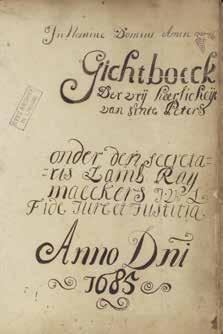 In Nomine Domini Amen
Gichtboeck
Der vrij heerlicheijt
van sinte Peters
onder den secreta-
ris Lamb Raÿ
maeckers
Fide Jure et Justitia
Anno Dni
1685